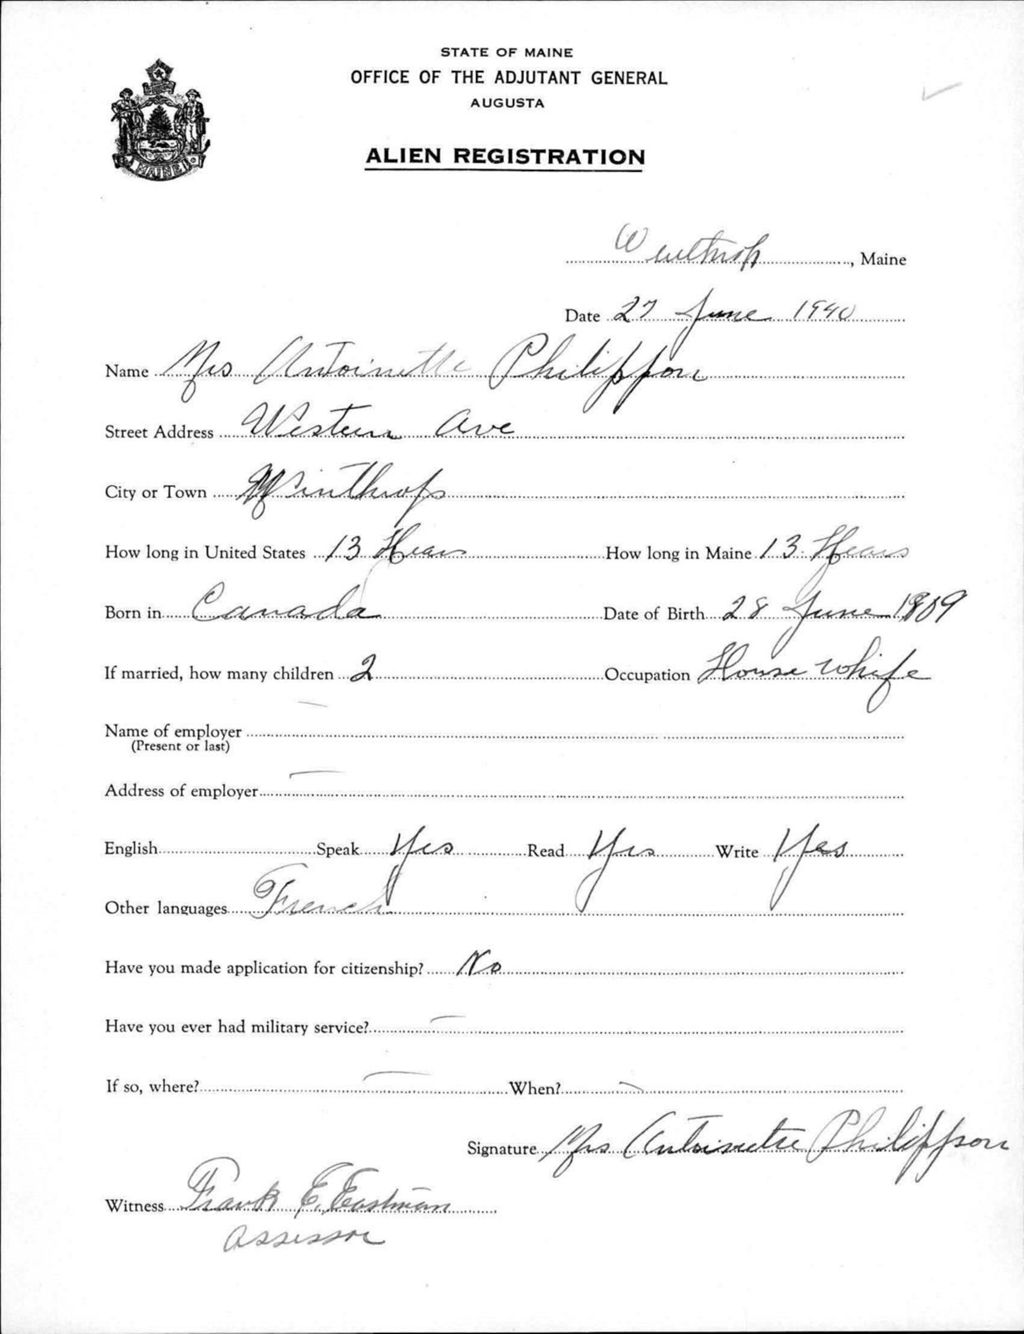 STATE OF MAINE
OFFICE OF THE ADJUTANT GENERAL
AUGUSTA
ALIEN REGISTRATION
MAINE
Winthrop, Maine
Date 27 June 1940
Name Mrs Antoinette Philippon
Street Address Western Ave
City or Town Winthrop
How long in United States 13 Years How long in Maine 13 Years
Born in Canada Date of Birth 28 June 1909
If married, how many children 2 Occupation House Whife
Name of employer —
(Present or last)
Address of employer —
English Speak Yes Read Yes Write Yes
Other languages French
Have you made application for citizenship? No
Have you ever had military service? —
If so, where? — When? —
Signature Mrs Antoinette Philippon
Witness Frank E. Eastman
Assessor